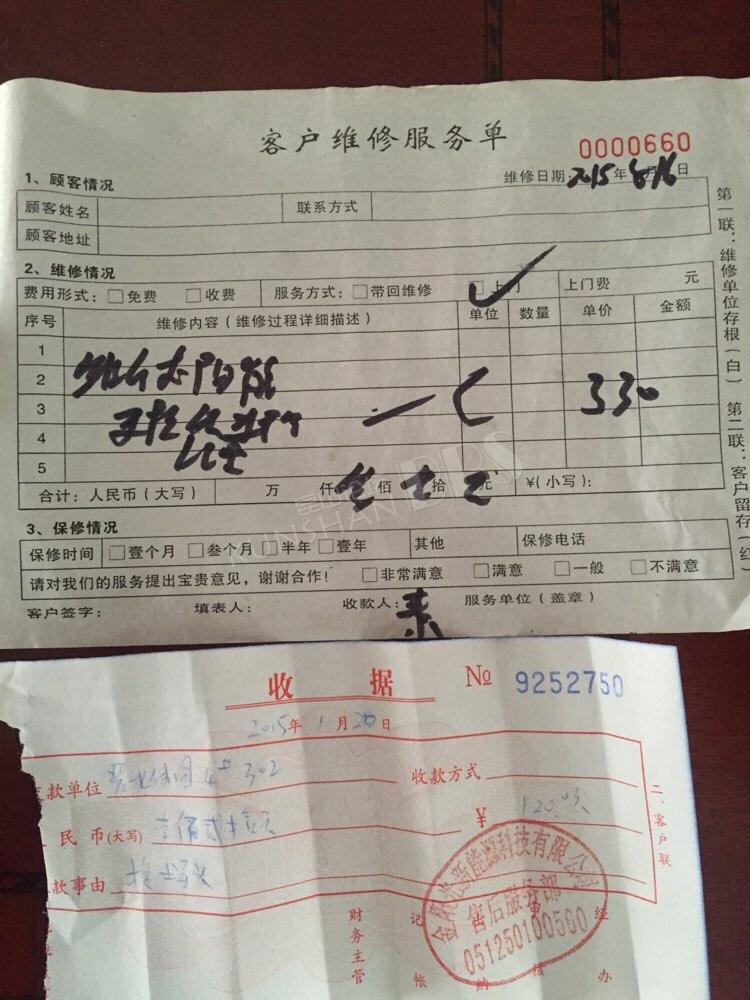 客户维修服务单
0000660
1、顾客情况
维修日期:2015年8月16日
顾客姓名 联系方式
顾客地址
2、维修情况
费用形式: □免费 □收费 服务方式: □带回维修 □上门 上门费 元
序号 维修内容(维修过程详细描述) 单位 数量 单价 金额
1
2
3 330
4
5
合计: 人民币(大写) 万 仟 佰 拾 元 ¥(小写):
3、保修情况
保修时间 □壹个月 □叁个月 □半年 □壹年 其他 保修电话
请对我们的服务提出宝贵意见,谢谢合作! □非常满意 □满意 □一般 □不满意
客户签字: 填表人: 收款人: 服务单位(盖章)
第一联:维修单位存根(白) 第二联:客户留存(红)
KUNSHAN BBS
收 据 № 9252750
2015年1月20日
款单位 4# 302 收款方式
民 币(大写) 壹佰贰拾元 ¥ 120.00
款事由
二、客户联
财务主管 记帐 审核 经办
金阳光新能源科技有限公司
售后服务部
051250100560